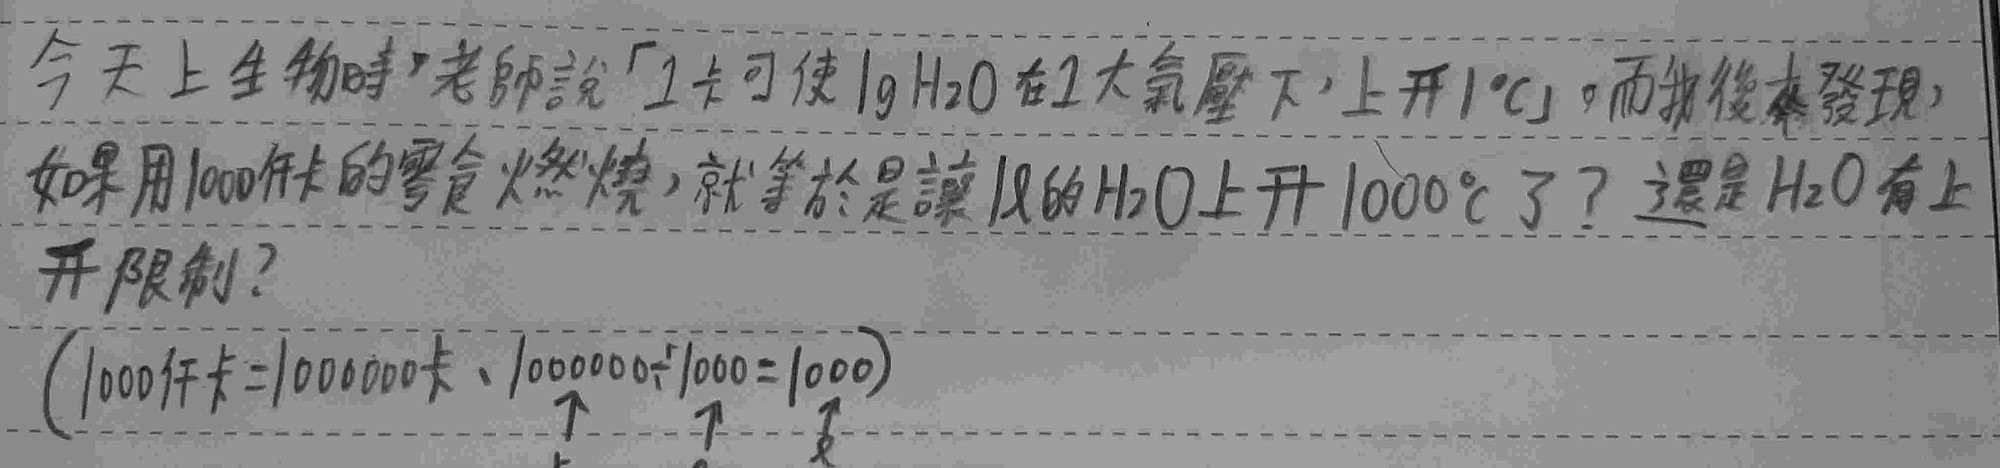 今天上生物時,老師說「1卡可使1g H2O在1大氣壓下,上升1℃」。而我後來發現,
如果用1000仟卡的零食燃燒,就等於是讓1ℓ的H2O上升1000℃了?還是H2O有上
升限制?
(1000仟卡=1000000卡、1000000÷1000=1000)
↑ ↑ ↑